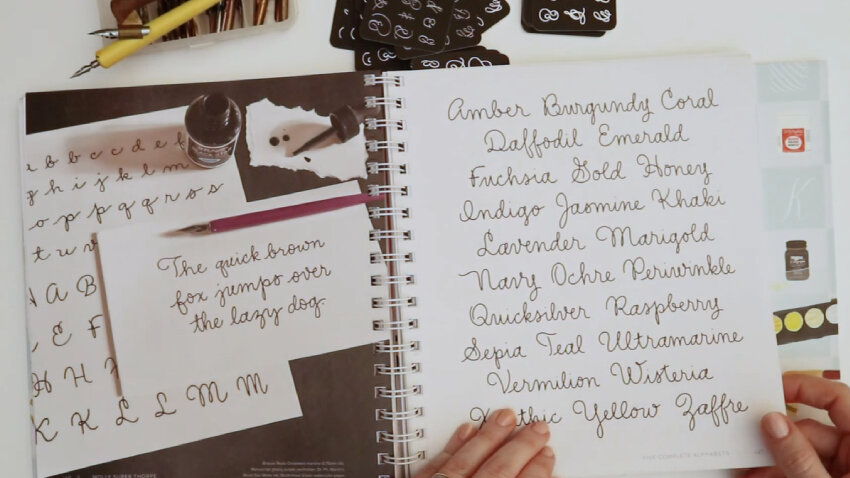 b b c c d e f
g h i j k l m
o p p q q r o s
t u v
The quick brown
fox jumps over
the lazy dog.
A B
E F
H H
K K L L M M
MOLLY SUBER THORPE
Amber Burgundy Coral
Daffodil Emerald
Fuchsia Gold Honey
Indigo Jasmine Khaki
Lavender Marigold
Navy Ochre Periwinkle
Quicksilver Raspberry
Sepia Teal Ultramarine
Vermilion Wisteria
Yellow Zaffre
FIVE COMPLETE ALPHABETS
K